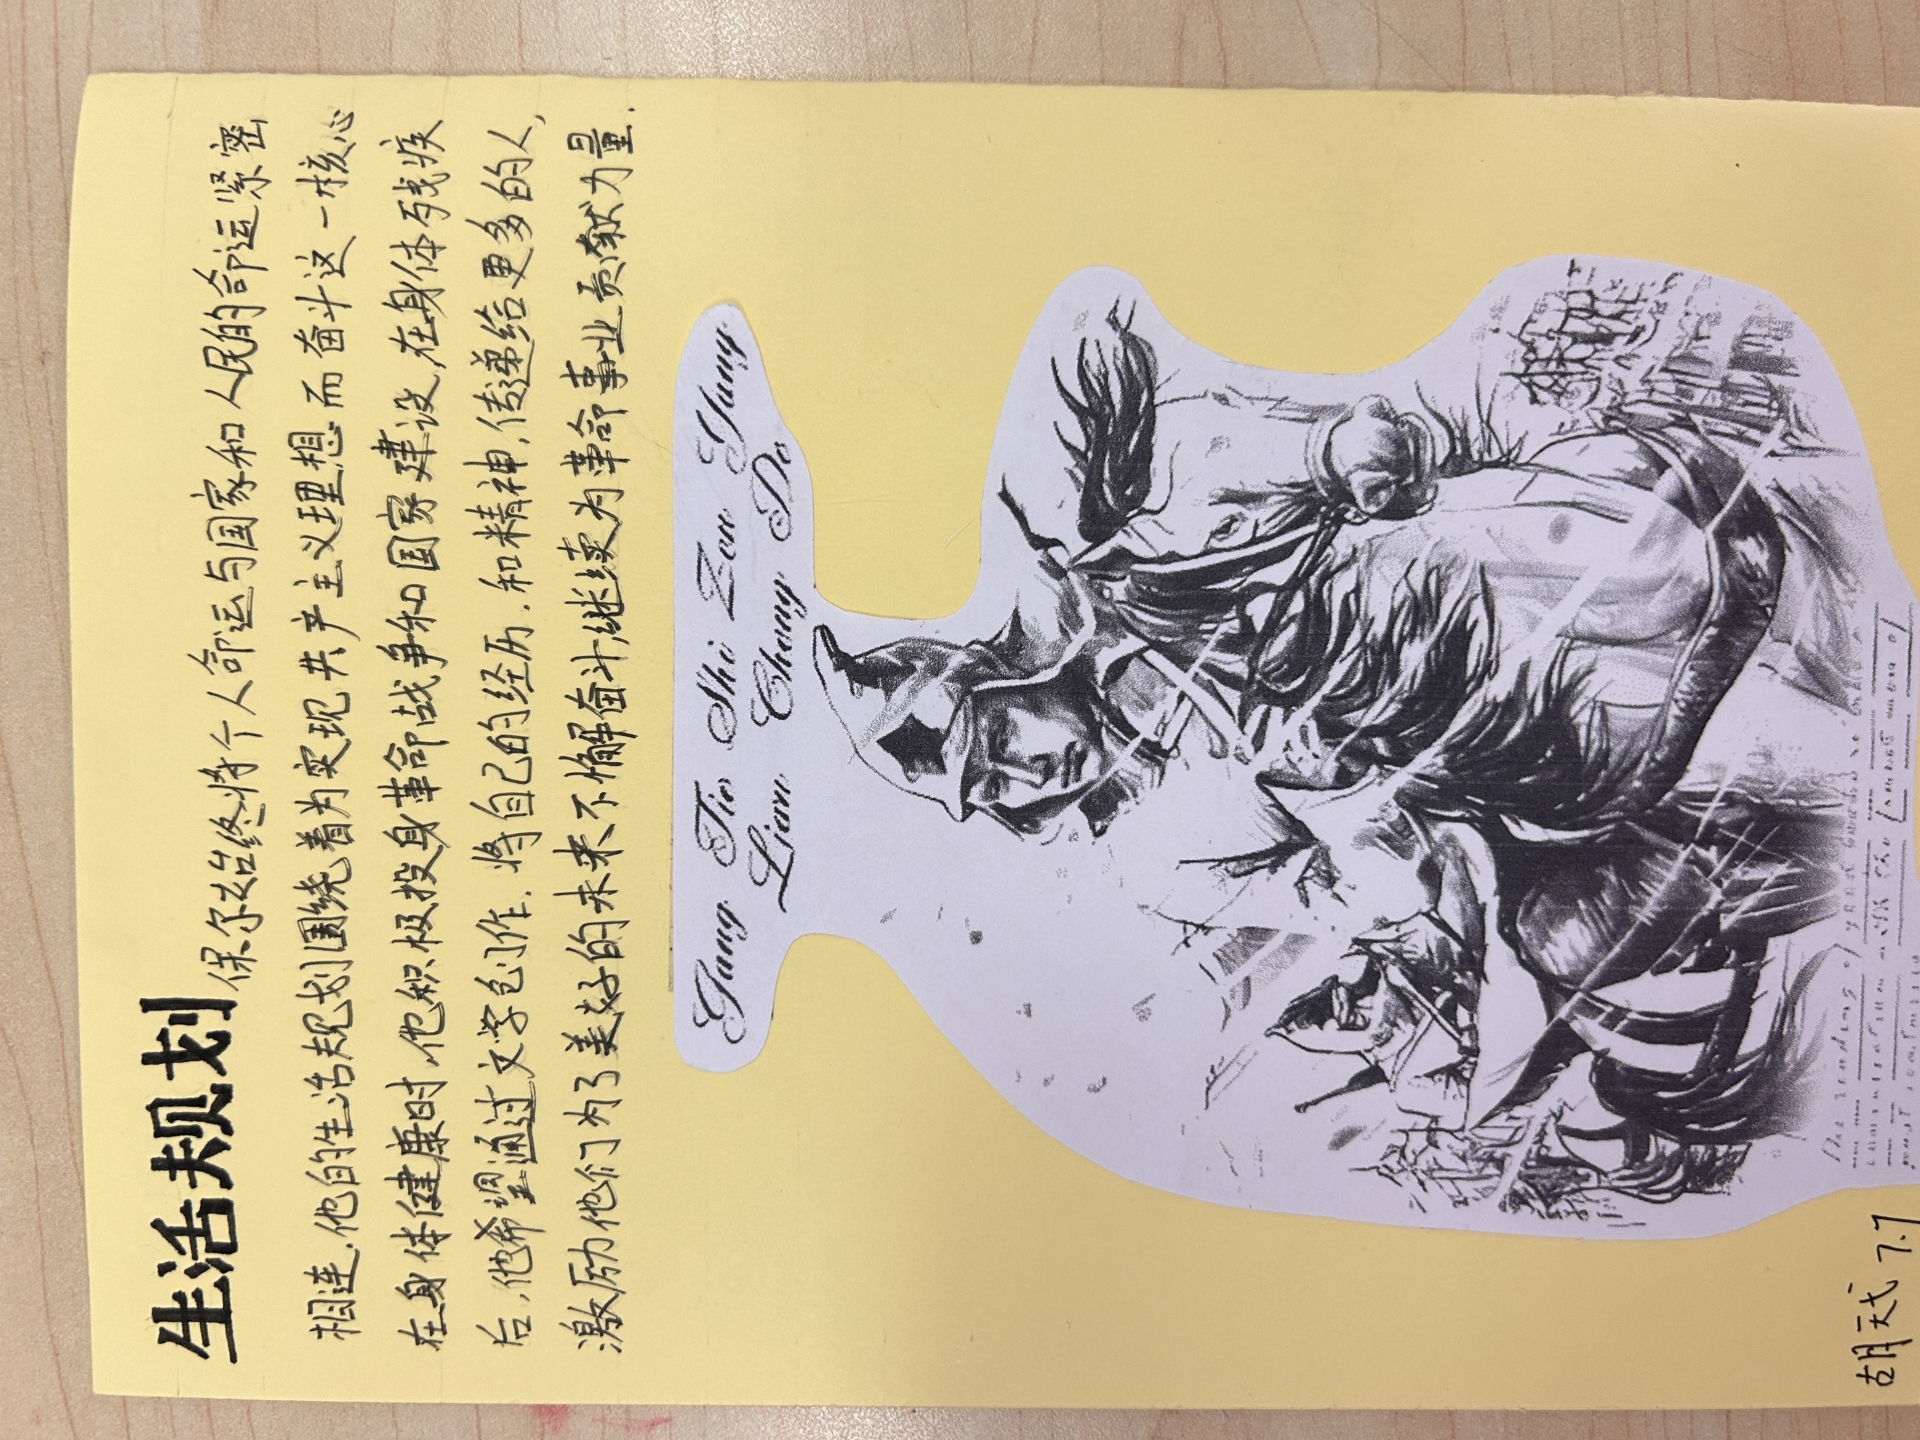 生活规划
保尔始终将个人命运与国家和人民的命运紧密
相连.他的生活规划围绕着为实现共产主义理想而奋斗这一核心
在身体健康时,他积极投身革命战争和国家建设,在身体残疾
后,他希望通过文学创作.将自己的经历.和精神.传递给更多的人,
激励他们为了美好的未来不懈奋斗,继续为革命事业贡献力量.
Gang Tie Shi Zen Yang
Lian Cheng De
7.7